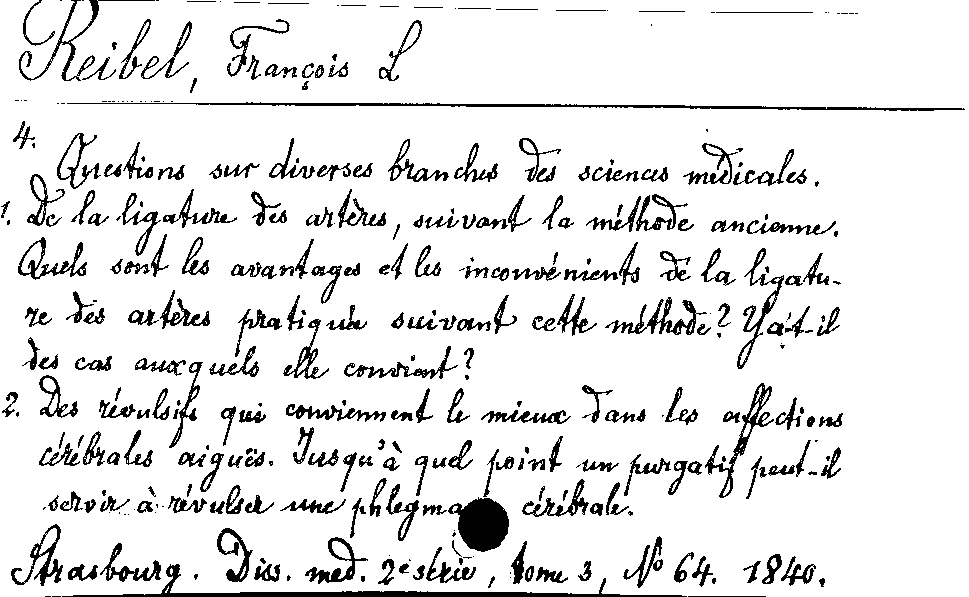 Reibel, François L
4.
Questions sur diverses branches des sciences médicales.
1. De la ligature des artères, suivant la méthode ancienne.
Quels sont les avantages et les inconvénients de la ligatu-
re des artères pratiquée suivant cette méthode? Y a-t-il
des cas auxquels elle convient?
2. Des révulsifs qui conviennent le mieux dans les affections
cérébrales aiguës. Jusqu'à quel point un purgatif peut-il
servir à révulser une cérébrale.
Strasbourg. Diss. med. 2e série, tome 3, No 64. 1840.